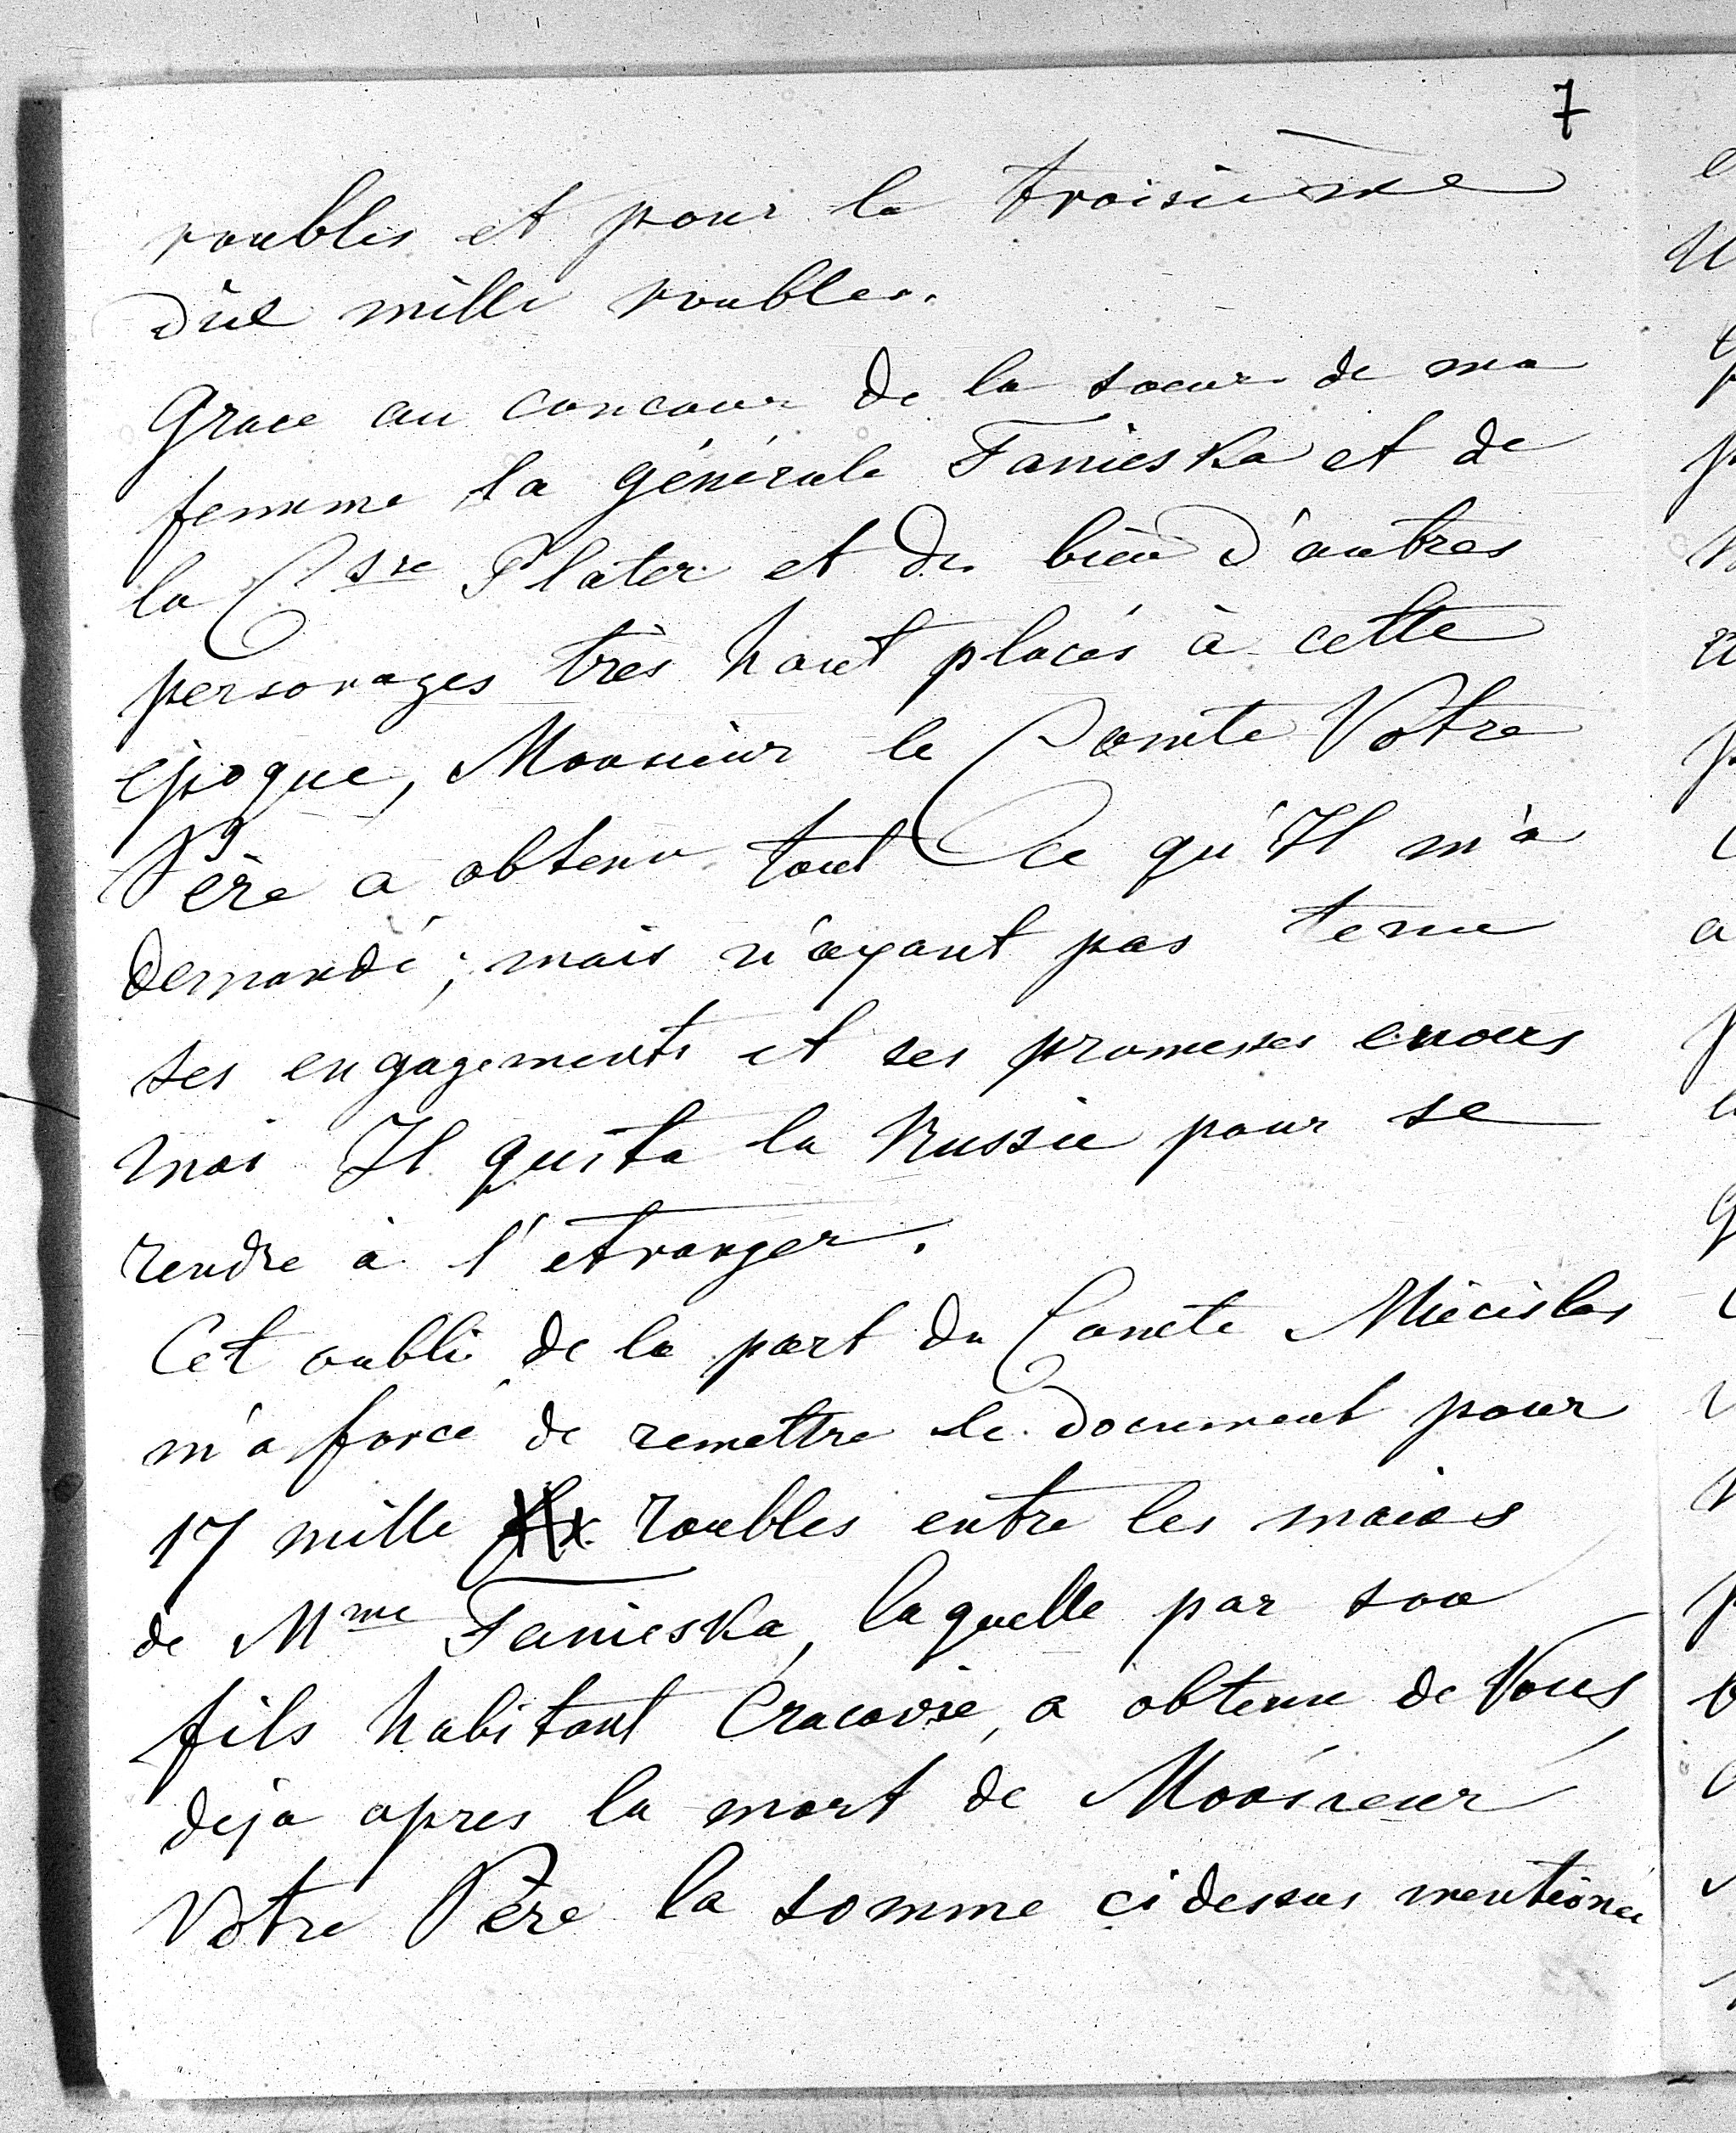 7
roubles et pour la troisième
dix mille roubles.
Grace au concour de la soeur de ma
femme la générale Fanieska et de
la Csse Plater et de bien d'autres
personages très haut placés à cette
époque, Monsieur le Comte Votre
Père a obtenu tout ce qu'Il m'a
demandé; mais n'ayant pas tenu
ses engagements et ses promesses envers
moi Il quita la Russie pour se
rendre à l'etranger.
Cet oubli de la part du Comte Miécislas
m'a forcé de remettre le document pour
17 mille roubles entre les mains
de Mme Fanieska, laquelle par son
fils habitant Cracovie, a obtenu de Vous
deja apres la mort de Monsieur
Votre Père la somme ci dessus mentionée